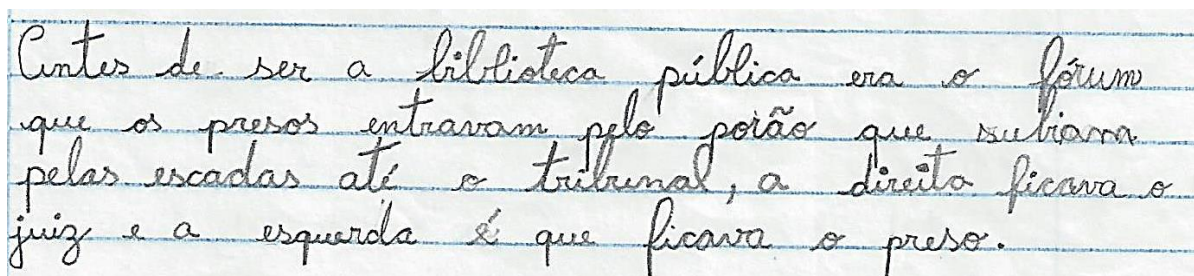 Antes de ser a biblioteca pública era o fórum
que os presos entravam pelo porão que subiam
pelas escadas até o tribunal, a direita ficava o
juiz e a esquerda é que ficava o preso.